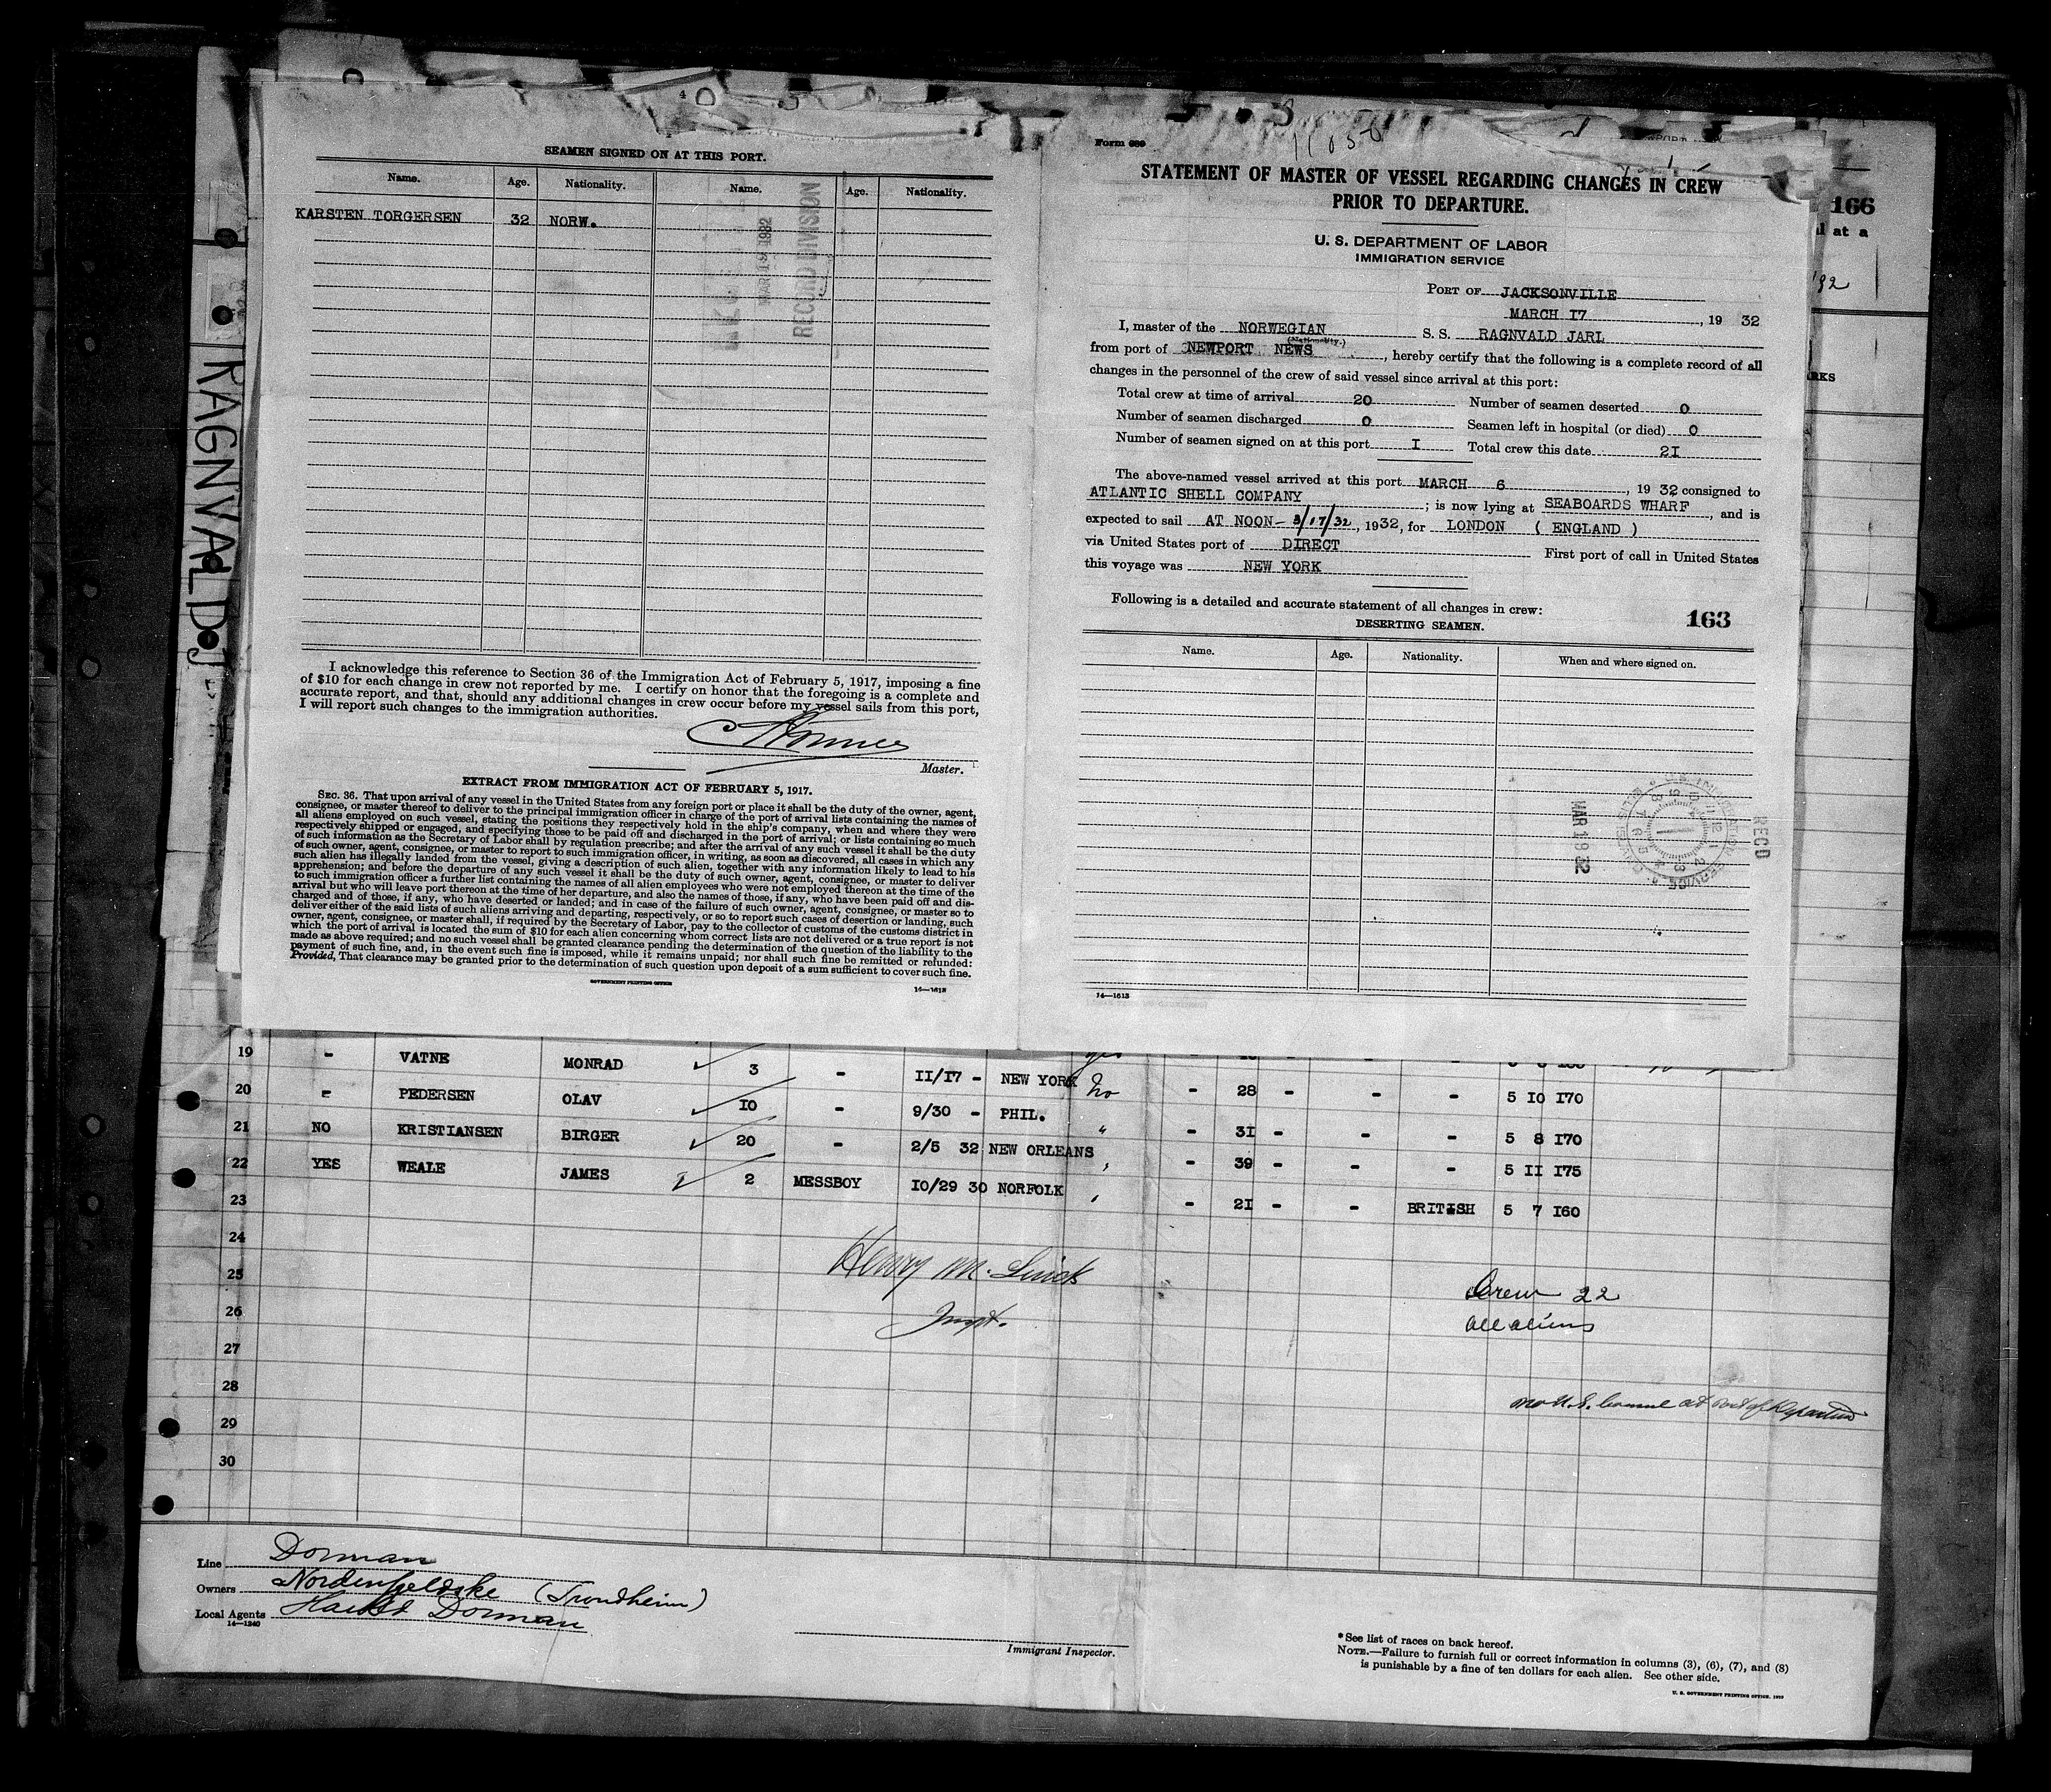 SEAMEN SIGNED ON AT THIS PORT.
Name. Age. Nationality. Name. Age. Nationality.
KARSTEN TORGERSEN 32 NORW.
MAR 19 1932
RECORD DIVISION
I acknowledge this reference to Section 36 of the Immigration Act of February 5, 1917, imposing a fine
of $10 for each change in crew not reported by me. I certify on honor that the foregoing is a complete and
accurate report, and that, should any additional changes in crew occur before my vessel sails from this port,
I will report such changes to the immigration authorities.
Master.
EXTRACT FROM IMMIGRATION ACT OF FEBRUARY 5, 1917.
SEC. 36. That upon arrival of any vessel in the United States from any foreign port or place it shall be the duty of the owner, agent,
consignee, or master thereof to deliver to the principal immigration officer in charge of the port of arrival lists containing the names of
all aliens employed on such vessel, stating the positions they respectively hold in the ship's company, when and where they were
respectively shipped or engaged, and specifying those to be paid off and discharged in the port of arrival; or lists containing so much
of such information as the Secretary of Labor shall by regulation prescribe; and after the arrival of any such vessel it shall be the duty
of such owner, agent, consignee, or master to report to such immigration officer, in writing, as soon as discovered, all cases in which any
such alien has illegally landed from the vessel, giving a description of such alien, together with any information likely to lead to his
apprehension; and before the departure of any such vessel it shall be the duty of such owner, agent, consignee, or master to deliver
to such immigration officer a further list containing the names of all alien employees who were not employed thereon at the time of the
arrival but who will leave port thereon at the time of her departure, and also the names of those, if any, who have been paid off and dis-
charged and of those, if any, who have deserted or landed; and in case of the failure of such owner, agent, consignee, or master so to
deliver either of the said lists of such aliens arriving and departing, respectively, or so to report such cases of desertion or landing, such
owner, agent, consignee, or master shall, if required by the Secretary of Labor, pay to the collector of customs of the customs district in
which the port of arrival is located the sum of $10 for each alien concerning whom correct lists are not delivered or a true report is not
made as above required; and no such vessel shall be granted clearance pending the determination of the question of the liability to the
payment of such fine, and, in the event such fine is imposed, while it remains unpaid; nor shall such fine be remitted or refunded:
Provided, That clearance may be granted prior to the determination of such question upon deposit of a sum sufficient to cover such fine.
GOVERNMENT PRINTING OFFICE 14—1613
Form 689
STATEMENT OF MASTER OF VESSEL REGARDING CHANGES IN CREW
PRIOR TO DEPARTURE.
U. S. DEPARTMENT OF LABOR
IMMIGRATION SERVICE
PORT OF JACKSONVILLE
MARCH 17, 19 32
I, master of the NORWEGIAN S. S. RAGNVALD JARL
(Nationality.)
from port of NEWPORT NEWS, hereby certify that the following is a complete record of all
changes in the personnel of the crew of said vessel since arrival at this port:
Total crew at time of arrival 20 Number of seamen deserted 0
Number of seamen discharged 0 Seamen left in hospital (or died) 0
Number of seamen signed on at this port I Total crew this date 2I
The above-named vessel arrived at this port MARCH 6, 19 32 consigned to
ATLANTIC SHELL COMPANY; is now lying at SEABOARDS WHARF, and is
expected to sail AT NOON- 3/17/32, 1932, for LONDON ( ENGLAND )
via United States port of DIRECT First port of call in United States
this voyage was NEW YORK
Following is a detailed and accurate statement of all changes in crew: 163
DESERTING SEAMEN.
Name. Age. Nationality. When and where signed on.
MAR 19 32
RECD
14—1613
166
RAGNVALD J
19 - VATNE MONRAD 3 - II/I7 - NEW YORK
20 - PEDERSEN OLAV IO - 9/30 - PHIL. No - 28 - - - 5 IO I70
21 NO KRISTIANSEN BIRGER 20 - 2/5 32 NEW ORLEANS " - 3I - - - 5 8 I70
22 YES WEALE JAMES 2 MESSBOY IO/29 30 NORFOLK - 39 - - - 5 II I75
23 - 2I - - BRITISH 5 7 I60
24
25
26
27
28
29
30
Henry M.
Inspt.
Crew 22
All aliens
no U.S. Consul at Port of Departure
Line Dorman
Owners Nordenfjeldske (Trondheim)
Local Agents Dorman
14—1240
Immigrant Inspector.
*See list of races on back hereof.
NOTE.—Failure to furnish full or correct information in columns (3), (6), (7), and (8)
is punishable by a fine of ten dollars for each alien. See other side.
U. S. GOVERNMENT PRINTING OFFICE